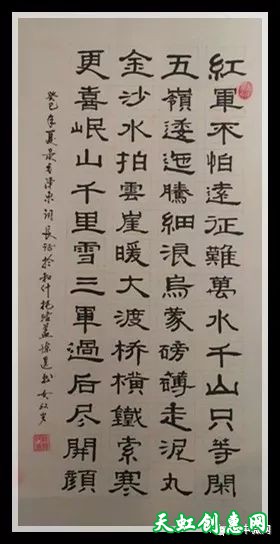 紅軍不怕遠征難萬水千山只等閑
五嶺逶迤騰細浪烏蒙磅礴走泥丸
金沙水拍雲崖暖大渡桥橫鐵索寒
更喜岷山千里雪三軍過后尽開顏
癸巳年夏录毛澤东詞长征於和什托洛盖
天虹创惠网